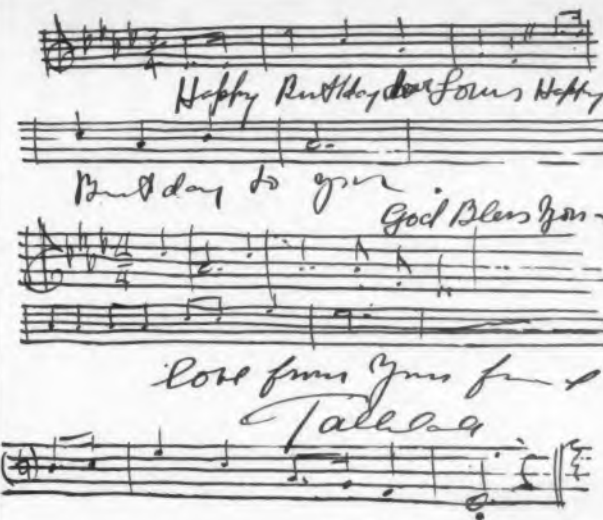 Happy Birthday dear Louis Happy
Birthday to you
God Bless You -
love from your friend
Tallulah